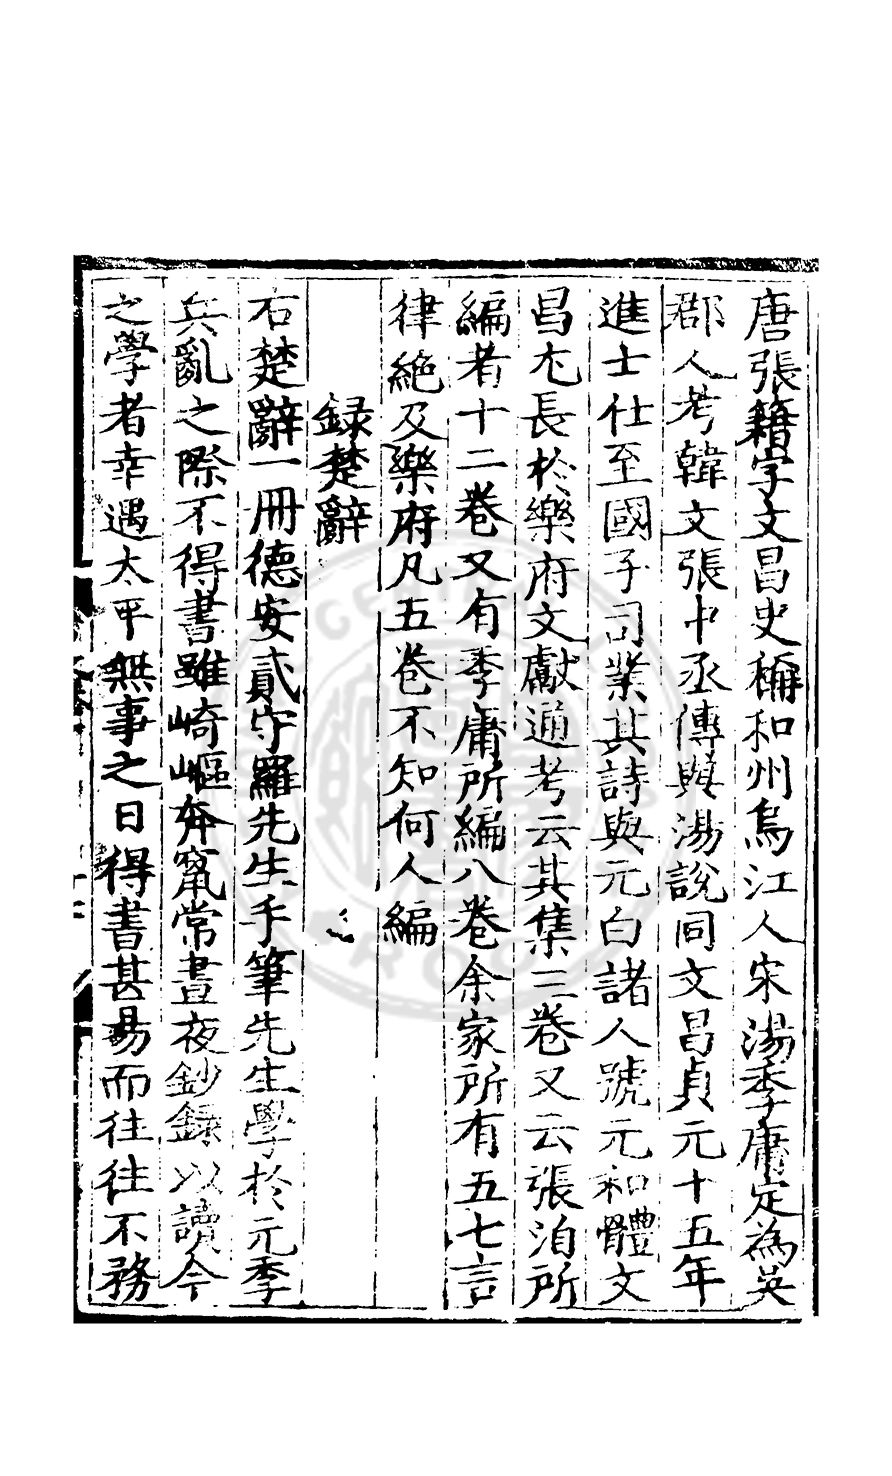 唐張籍字文昌史稱和州烏江人宋湯季庸定為吳
郡人考韓文張中丞傳與湯說同文昌貞元十五年
進士仕至國子司業其詩與元白諸人號元和體文
昌尤長於樂府文獻通考云其集三卷又云張洎所
編者十二卷又有季庸所編八卷余家所有五七言
律絶及樂府凡五卷不知何人編
録楚辭
右楚辭一冊德安貳守羅先生手筆先生學於元季
兵亂之際不得書雖崎嶇奔竄常晝夜鈔録以讀今
之學者幸遇太平無事之日得書甚易而往往不務